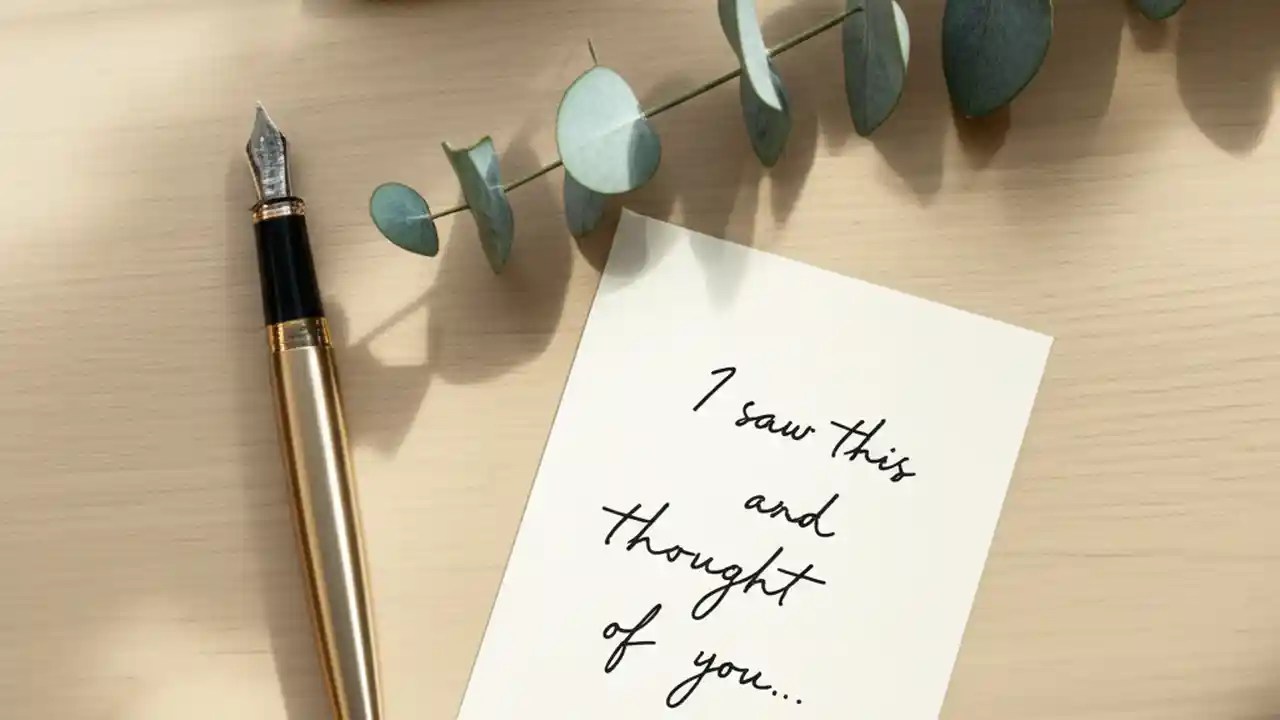 I saw this
and
thought
of you...